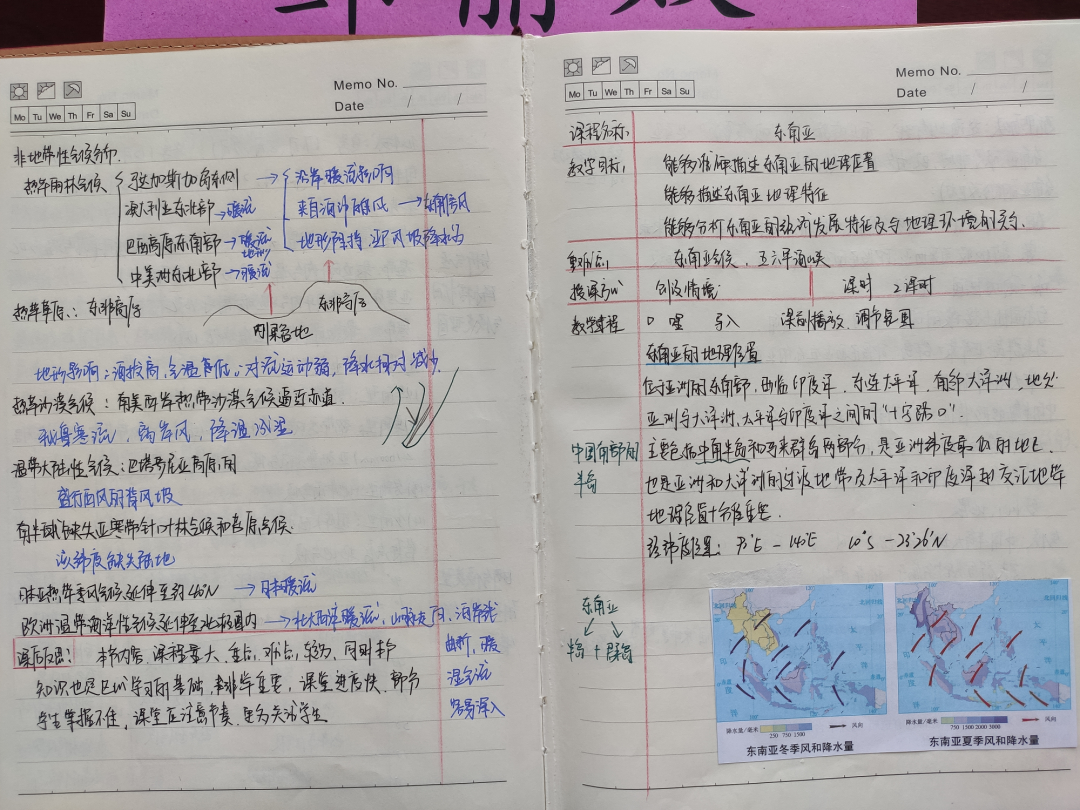 Memo No.
Date / /
Mo Tu We Th Fr Sa Su
非地带性气候分布.
热带雨林气候 马达加斯加岛东侧 → 沿岸暖流影响
澳大利亚东北部 → 暖流 来自海洋的信风 → 东南信风
巴西高原东南部 → 暖流 地形 地形阻挡 迎风坡降水多
中美洲东北部 → 暖流
热带草原: 东非高原
东非高原
刚果盆地
地形影响:海拔高,气温真低.对流运动弱,降水相对减少.
热带沙漠气候:南美西岸热带沙漠气候逼近赤道.
秘鲁寒流,离岸风,降温减湿
温带大陆性气候:巴塔哥尼亚高原
盛行西风的背风坡
南半球缺失亚寒带针叶林气候和苔原气候.
该纬度缺失陆地
亚热带季风气候延伸至约40°N → 日本暖流
欧洲温带海洋性气候延伸至北极圈内 → 北大西洋暖流,山脉走向,海岸线
曲折,暖
湿气流
容易深入
课后反思: 本节内容,课程量大,重点,难点,较多,同时本节
知识也是区域学习的基础,非常重要,课堂进度快,部分
学生掌握不住,课堂应注意节奏,更多关注学生
Memo No.
Date / /
Mo Tu We Th Fr Sa Su
课程名称: 东南亚
教学目标: 能够准确描述东南亚的地理位置
能够描述东南亚地理特征
能够分析东南亚的经济发展特征及与地理环境的关系.
重难点: 东南亚气候,马六甲海峡
授课方式 创设情境 课时 2课时
教学过程 导入 课前播放
东南亚的地理位置
位于亚洲的东南部,西临印度洋,东连太平洋,南邻大洋洲,地处
亚洲与大洋洲,太平洋与印度洋之间的"十字路口".
中国南部的
半岛
主要包括中南半岛和马来群岛两部分,是亚洲纬度最低的地区
也是亚洲和大洋洲的过渡地带及太平洋和印度洋的交汇地带
地理位置十分重要.
经纬度位置: 93°E - 140°E 10°S - 23°26'N
东南亚
半岛 + 群岛
降水量/毫米 250 750 1500 风向
东南亚冬季风和降水量
降水量/毫米 750 1500 2000 3000 风向
东南亚夏季风和降水量